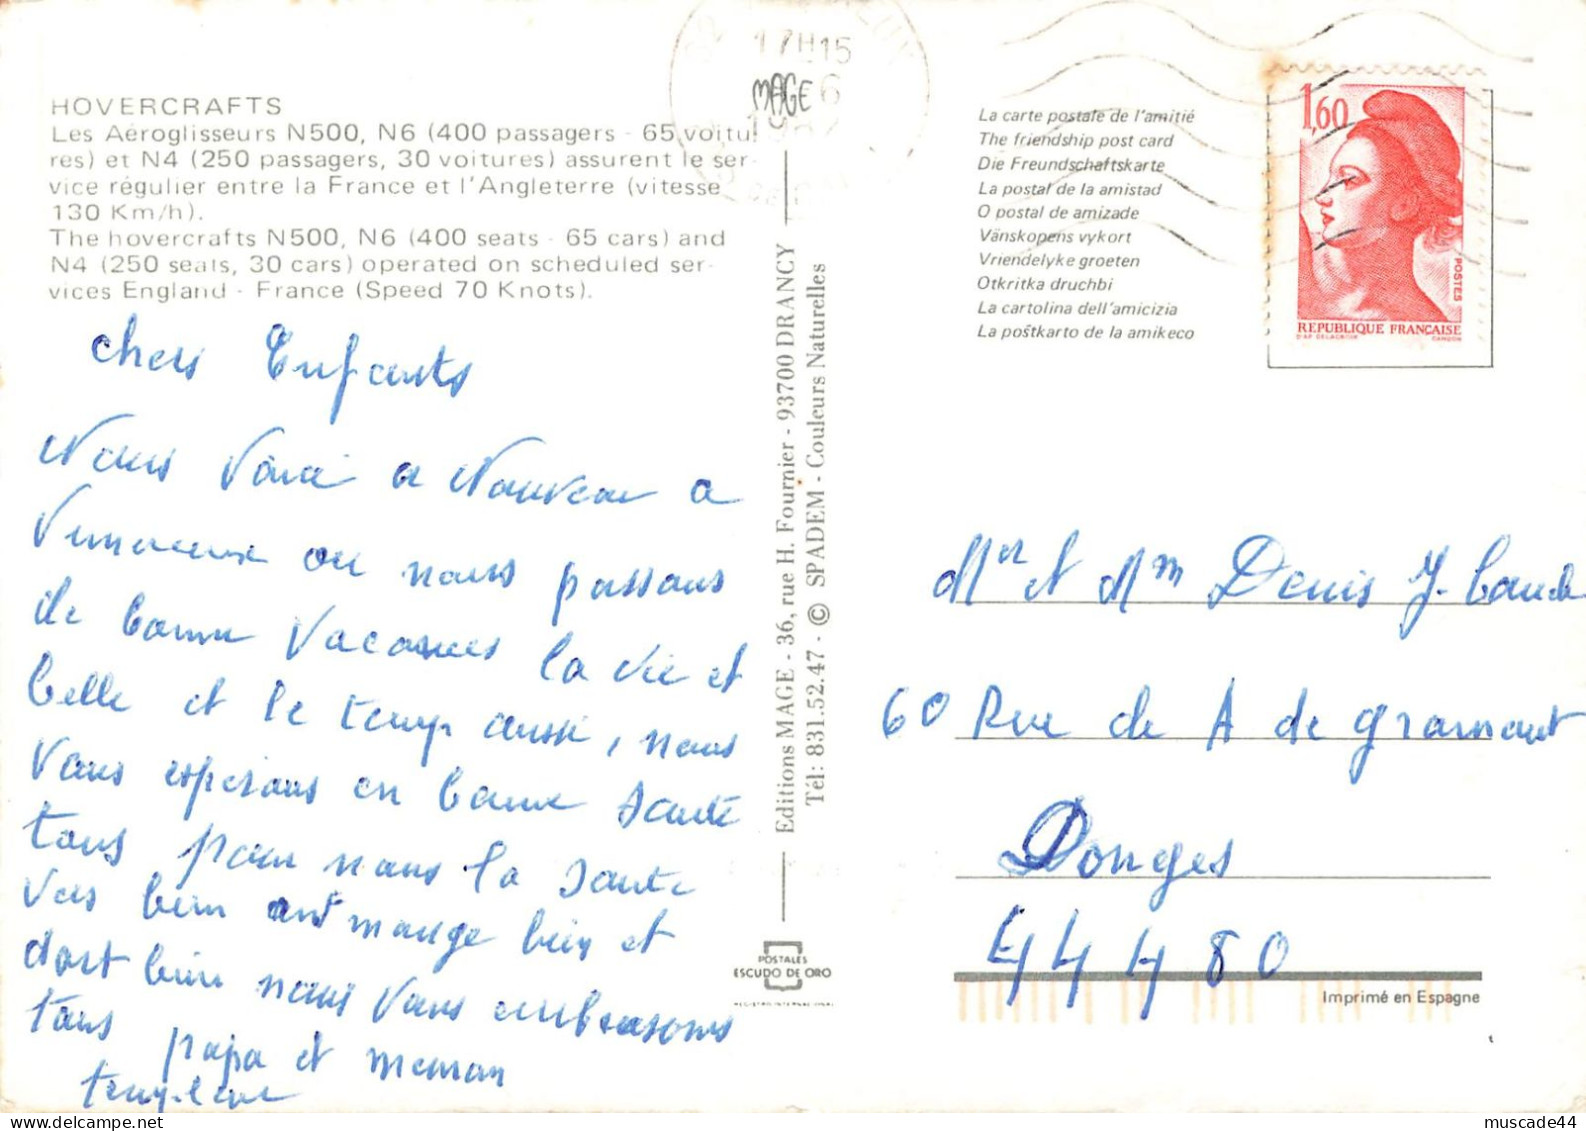 HOVERCRAFTS
Les Aéroglisseurs N500, N6 (400 passagers - 65 voitu
res) et N4 (250 passagers, 30 voitures) assurent le ser-
vice régulier entre la France et l'Angleterre (vitesse
130 Km/h).
The hovercrafts N500, N6 (400 seats - 65 cars) and
N4 (250 seats, 30 cars) operated on scheduled ser-
vices England - France (Speed 70 Knots).
chers Enfants
Nous Voici a Nouveau a
ou nous passons
de bonne Vacances la vie et
belle et le temps aussi, nous
Vous esperons en bonne Santé
tous pour nous la Santé
Vas bien ont mange bien et
dort bien nous Vous embrassons
tous papa et meman
17H15
MAGE
Editions MAGE - 36, rue H. Fournier - 93700 DRANCY
Tél: 831.52.47 - © SPADEM - Couleurs Naturelles
POSTALES
ESCUDO DE ORO
REGISTRO INTERNACIONAL
La carte postale de l'amitié
The friendship post card
Die Freundschaftskarte
La postal de la amistad
O postal de amizade
Vänskopens vykort
Vriendelyke groeten
Otkritka druchbi
La cartolina dell'amicizia
La poŝtkarto de la amikeco
1,60
POSTES
REPUBLIQUE FRANÇAISE
D'AP. DELACROIX GANDON
Mer et Mm Denis J-
60 Rue de A de gramont
Donges
44480
Imprimé en Espagne
muscade44